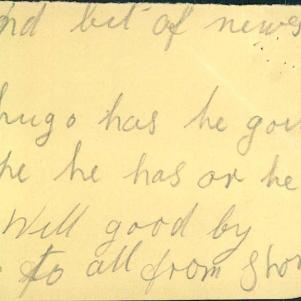 bit of news
hugo has he
he has or he
Well good by
to all from